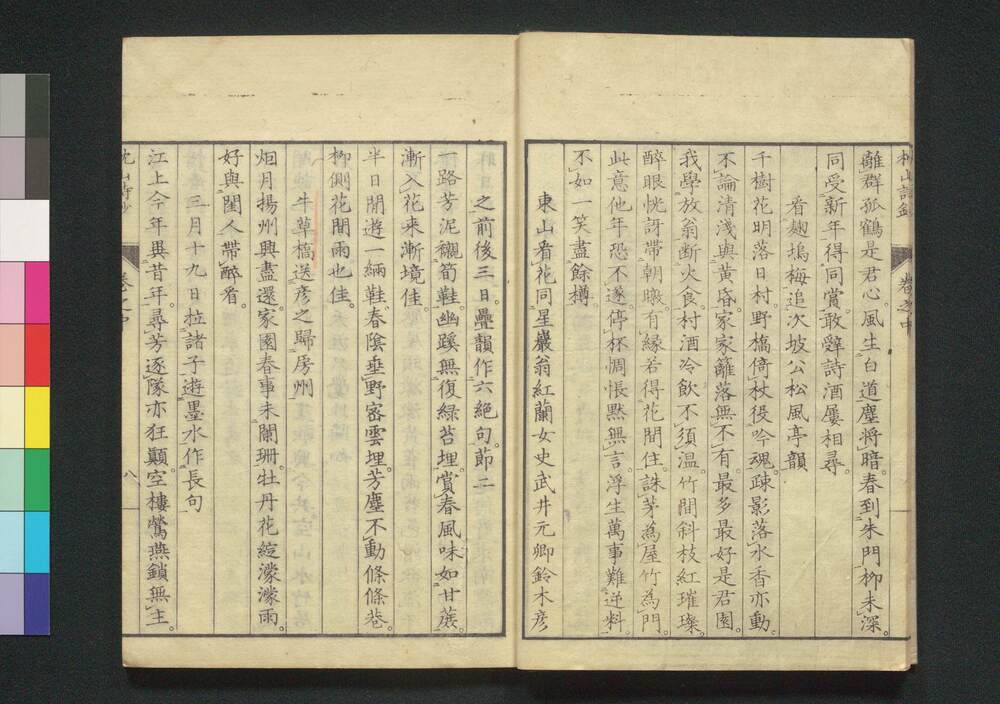 離群孤鶴是君心。風生白道塵將暗。春到朱門柳未深。
同受新年得同賞。敢辭詩酒屢相尋。
看趣塢梅追次坡公松風亭韻
千樹花明落日村。野橋倚杖役吟魂。疎影落水香亦動。
不論清淺與黃昏。家家籬落無不有。最多最好是君園。
我學放翁斷火食。村酒冷飲不須溫。竹間斜枝紅璀璨。
醉眼恍訝帶朝暾。有緣若得花間住。誅茅為屋竹為門。
此意他年恐不遂。停杯惆悵默無言。浮生萬事難逆料。
不如一笑盡餘樽。
東山看花同星巖翁紅蘭女史武井元卿鈴木彥
之前後三日疊韻作六絕句。節二
一路芳泥襯筍鞋。幽蹊無復綠苔埋。賞春風味如甘蔗。
漸入花来漸境佳。
半日閒遊一緉鞋。春陰垂野密雲埋。芳塵不動條條巷。
柳側花間雨也佳。
牛草橋送彥之歸房州
烟月揚州興盡還。家園春事未闌珊。牡丹花綻濛濛雨。
好與閨人帶醉看。
三月十九日拉諸子遊墨水作長句
江上今年異昔年。尋芳逐隊亦狂顛。空樓鶯燕鎖無主。
卷之中
八